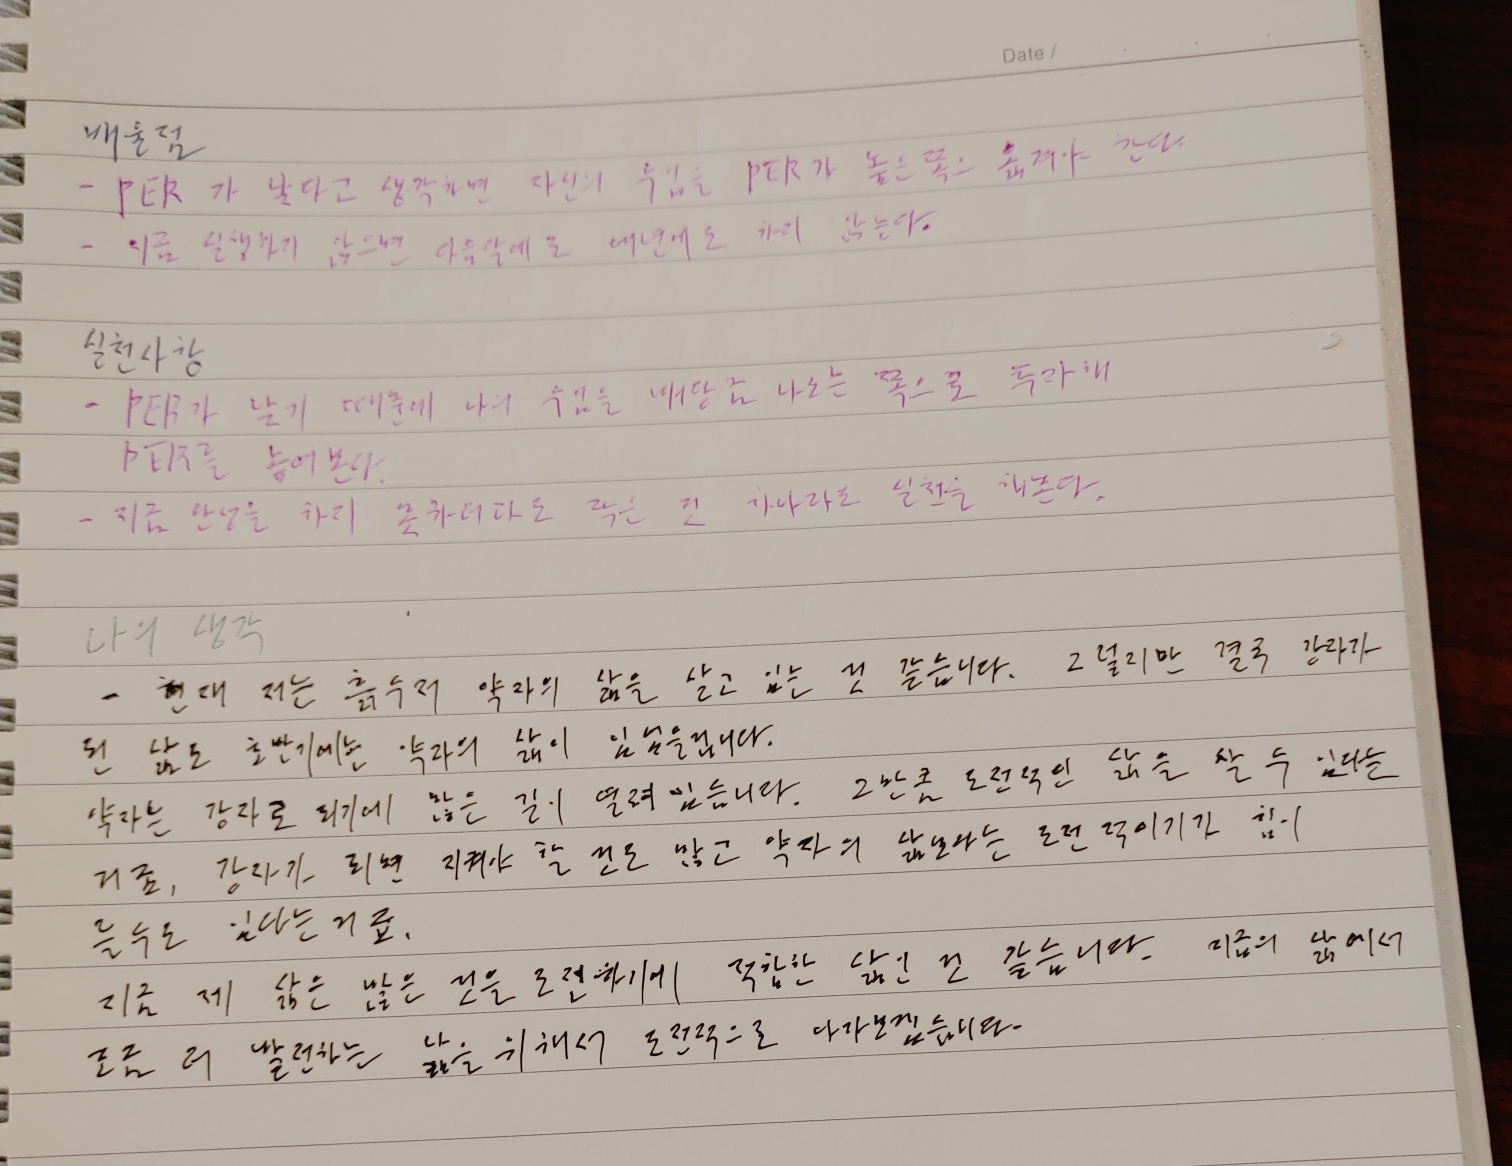 Date /
배울점
- PER 가 낮다고 생각하면 자신의 수입을 PER가 높은쪽으 옮겨야 한다.
- 지금 실행하지 않으면 다음달에도 내년에도 하지 않는다.
실천사항
- PER가 낮기 때문에 나의 수입을 배당금 나오는 쪽으로 투자해
PER를 높여본다.
- 지금 안성을 하지 못하더라도 작은 것 하나라도 실천을 해본다.
나의 생각
- 현재 저는 흙수저 약자의 삶을 살고 있는 것 같습니다. 그렇지만 결국 강자가
된 삶도 초반기에는 약자의 삶이 있었을겁니다.
약자는 강자로 되기에 많은 길이 열려있습니다. 그만큼 도전적인 삶을 살 수 있다는
거죠, 강자가 되면 지켜야 할 것도 많고 약자의 삶보다는 도전적이기가 힘이
들수도 있다는거죠.
지금 제 삶은 많은 것을 도전하기에 적합한 삶인 것 같습니다. 지금의 삶에서
조금 더 발전하는 삶을 위해서 도전적으로 나가보겠습니다.